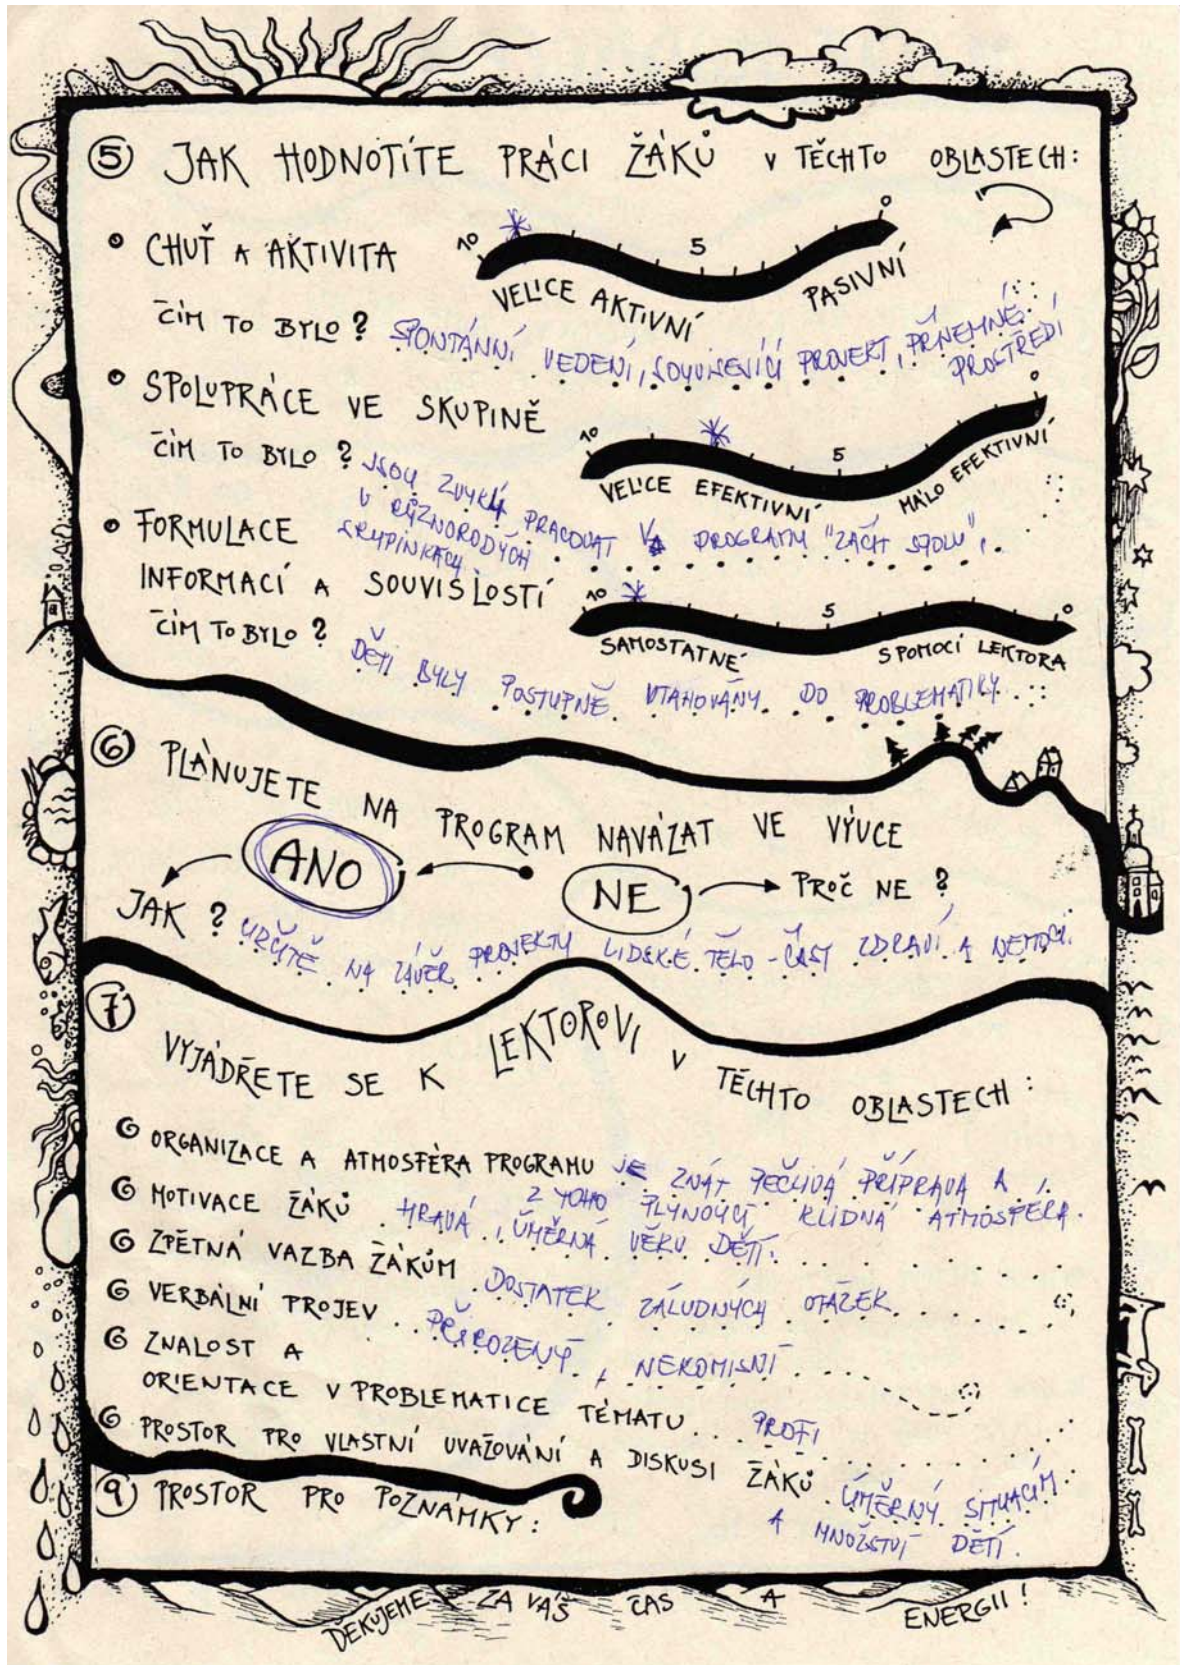 5 JAK HODNOTÍTE PRÁCI ŽÁKŮ V TĚCHTO OBLASTECH:
• CHUŤ A AKTIVITA
10 5 0
VELICE AKTIVNÍ PASIVNÍ
ČÍM TO BYLO? SPONTÁNNÍ VEDENÍ, SOUVISEJÍCÍ PROJEKT, PŘÍJEMNÉ
PROSTŘEDÍ
• SPOLUPRÁCE VE SKUPINĚ
10 5 0
VELICE EFEKTIVNÍ MÁLO EFEKTIVNÍ
ČÍM TO BYLO? JSOU ZVYKLÍ PRACOVAT V PROGRAMU "ZAČÍT SPOLU",
V RŮZNORODÝCH
SKUPINKÁCH
• FORMULACE
INFORMACÍ A SOUVISLOSTÍ
10 5 0
SAMOSTATNĚ S POMOCÍ LEKTORA
ČÍM TO BYLO? DĚTI BYLY POSTUPNĚ VTAHOVÁNY DO PROBLEMATIKY
6 PLÁNUJETE NA PROGRAM NAVÁZAT VE VÝUCE
ANO NE PROČ NE?
JAK? URČITĚ NA ZÁVĚR PROJEKTU LIDSKÉ TĚLO - ČÁST ZDRAVÍ A NEMOCI.
7 VYJÁDŘETE SE K LEKTOROVI V TĚCHTO OBLASTECH:
ORGANIZACE A ATMOSFÉRA PROGRAMU JE ZNÁT PEČLIVÁ PŘÍPRAVA A
Z TOHO PLYNOUCÍ KLIDNÁ ATMOSFÉRA.
MOTIVACE ŽÁKŮ HRAVÁ, ÚMĚRNÁ VĚKU DĚTÍ.
ZPĚTNÁ VAZBA ŽÁKŮM DOSTATEK ZÁLUDNÝCH OTÁZEK
VERBÁLNÍ PROJEV PŘIROZENÝ, NEKOMISNÍ
ZNALOST A
ORIENTACE V PROBLEMATICE TÉMATU PROFI
PROSTOR PRO VLASTNÍ UVAŽOVÁNÍ A DISKUSI ŽÁKŮ ÚMĚRNÝ SITUACÍM
A MNOŽSTVÍ DĚTÍ.
9 PROSTOR PRO POZNÁMKY:
DĚKUJEME ZA VÁŠ ČAS A ENERGII!